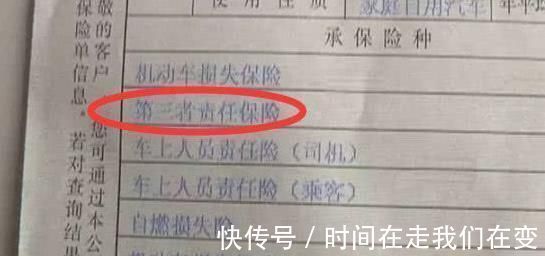 使用性质
家庭自用汽车
承保险种
机动车损失保险
第三者责任保险
车上人员责任险(司机)
车上人员责任险(乘客)
自燃损失险
敬的客户
您可通过本公
保险单信息。若对查询结果
快传号 / 时间在走我们在变